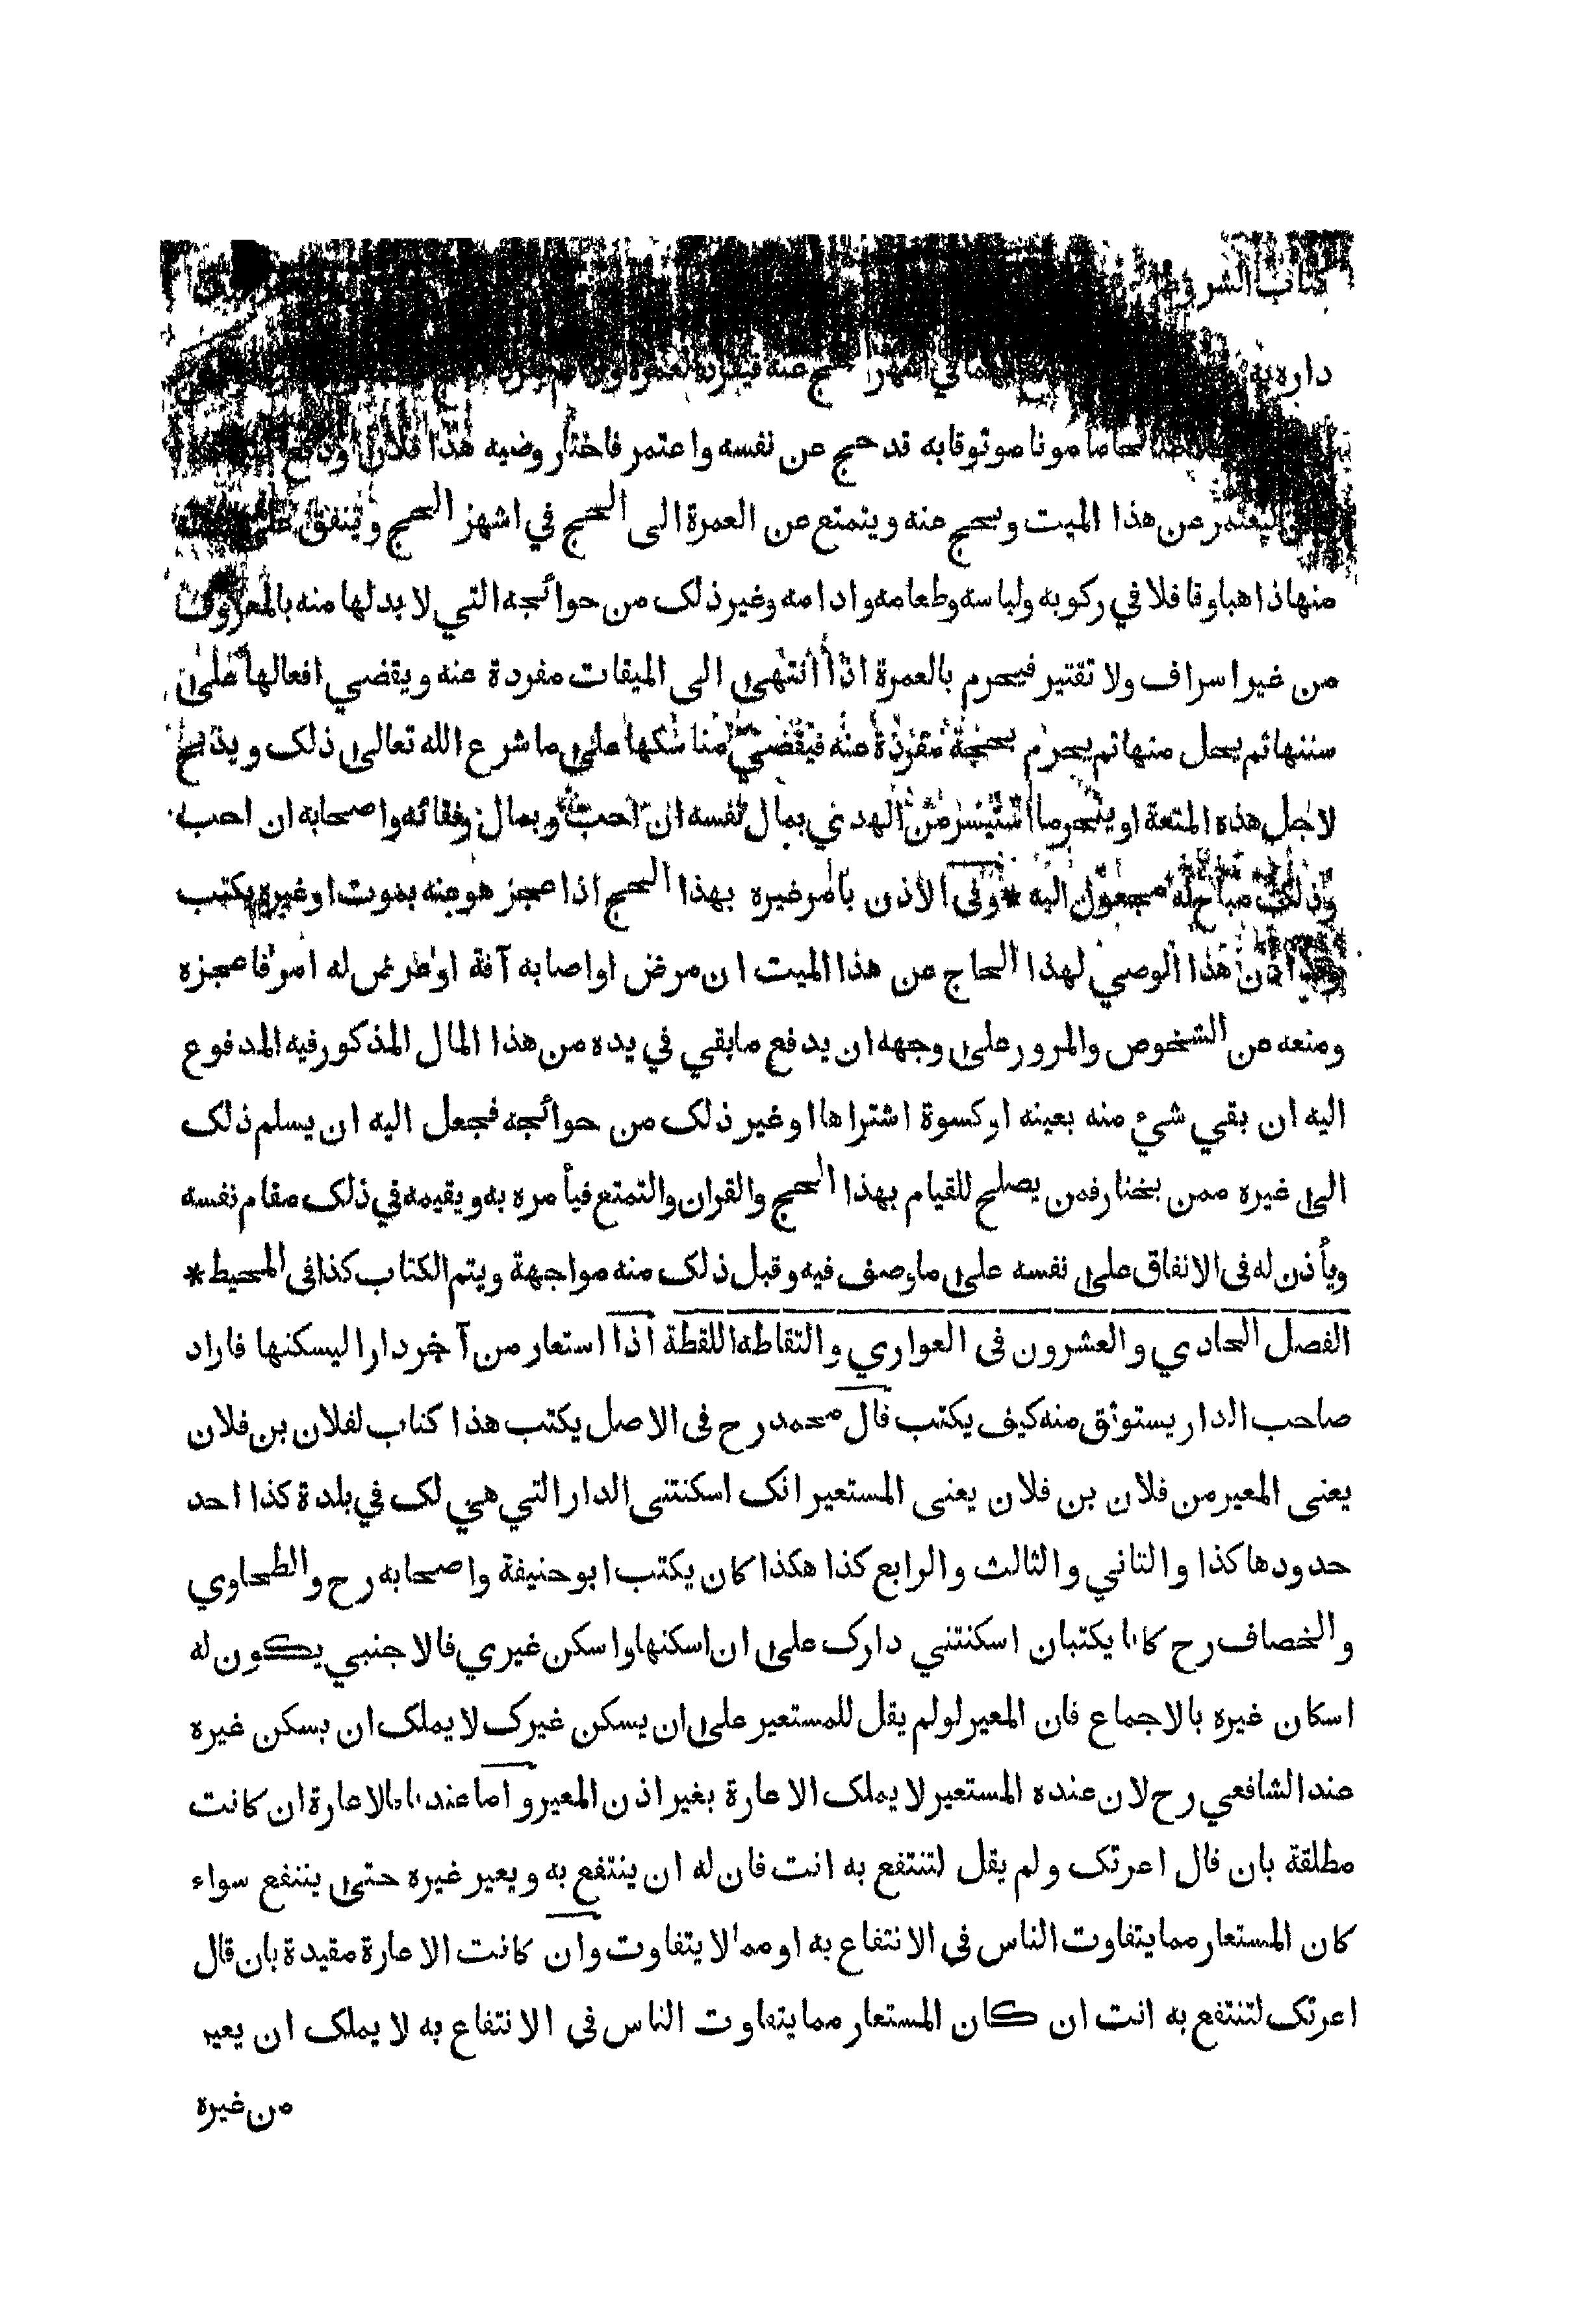 كتاب الشروط
داره به في اشهر الحج عنه فيفرد العمرة
مامونا موثوقا به قد حج عن نفسه واعتمر فاختار وصيه هذا فلان ودفع
ليعتمر عن هذا الميت ويحج عنه ويتمتع من العمرة الى الحج في اشهر الحج وينفق على
منها ذاهبا وقافلا في ركوبه ولباسه وطعامه وادامه وغير ذلك من حوائجه التي لا بد لها منه بالمعروف
من غير اسراف ولا تقتير فيحرم بالعمرة اذا انتهى الى الميقات مفردة عنه ويقضي افعالها على
سننها ثم يحل منها ثم يحرم بحجة مفردة عنه فيقضي مناسكها على ما شرع الله تعالى ذلك ويذبح
لاجل هذه المتعة او ينحر ما استيسر من الهدي بمال نفسه ان احب وبمال رفقائه واصحابه ان احب
وذلك مباح له مجعول اليه * وفى الاذن بامر غيره بهذا الحج اذا عجز هو عنه بموت او غيره يكتب
وقد اذن هذا الوصي لهذا الحاج عن هذا الميت ان مرض او اصابه آفة او عرض له امر فاعجزه
ومنعه عن الشخوص والمرور على وجهه ان يدفع ما بقي في يده من هذا المال المذكور فيه المدفوع
اليه ان بقي شيء منه بعينه او كسوة اشتراها او غير ذلك من حوائجه فجعل اليه ان يسلم ذلك
الى غيره ممن يختار فمن يصلح للقيام بهذا الحج والقران والتمتع فيأمره به ويقيمه في ذلك مقام نفسه
ويأذن له فى الانفاق على نفسه على ما وصف فيه وقبل ذلك منه مواجهة ويتم الكتاب كذا فى المحيط *
الفصل الحادي والعشرون فى العواري والتقاطه اللقطة اذا استعار من آخر دارا ليسكنها فاراد
صاحب الدار يستوثق منه كيف يكتب قال محمد رح فى الاصل يكتب هذا كتاب لفلان بن فلان
يعنى المعير من فلان بن فلان يعنى المستعير انك اسكنتنى الدار التي هي لك في بلدة كذا احد
حدودها كذا والثاني والثالث والرابع كذا هكذا كان يكتب ابو حنيفة واصحابه رح والطحاوي
والخصاف رح كانا يكتبان اسكنتني دارك على ان اسكنها واسكن غيري فالاجنبي يكون له
اسكان غيره بالاجماع فان المعير لو لم يقل للمستعير على ان يسكن غيرك لا يملك ان يسكن غيره
عند الشافعي رح لان عنده المستعير لا يملك الاعارة بغير اذن المعير واما عندنا فالاعارة ان كانت
مطلقة بان قال اعرتك ولم يقل لتنتفع به انت فان له ان ينتفع به ويعير غيره حتى ينتفع سواء
كان المستعار مما يتفاوت الناس في الانتفاع به او مما لا يتفاوت وان كانت الاعارة مقيدة بان قال
اعرتك لتنتفع به انت ان كان المستعار مما يتفاوت الناس فى الانتفاع به لا يملك ان يعير
من غيره